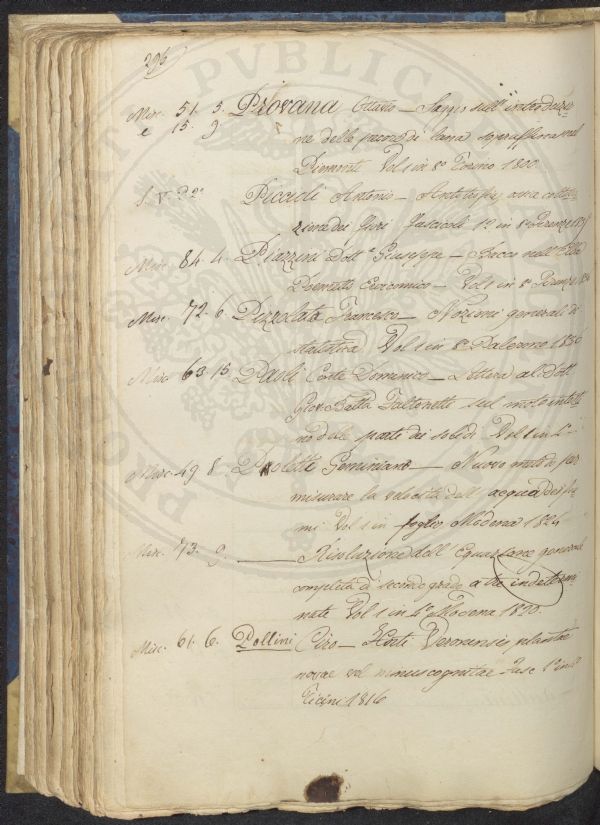 296
Misc. 51. 5. Provana Ottavio — Saggio sull' introduzio-
e 15. 9. ne delle pecore di lana sopraffina nel
Piemonte Vol 1 in 8º Torino 1800
Piccioli Antonio — Antotrofia, ossia colti-
zione dei fiori Fascicoli 1º in 8º Firenze
Misc. 84. 4. Piazzini Dott.e Giuseppe — Bacco nell'Elba
Poemetto Vol 1 in 8º Firenze
Misc. 72. 6. Pizzolato Francesco — Nozioni generali di
statistica Vol 1 in 8º Palermo 1836
Misc 63 15 Paoli Conte Domenico — Lettera al Dott.
Giov. Batta sul moto intesti-
no delle parti dei solidi Vol 1 in
Misc. 49 8 Paoletti Geminiano — Nuovo metodo per
misurare la velocità dell' acqua dei fiu-
mi Vol 1 in foglio Modena 1824
Misc. 73. 9. ——— Risoluzione dell' Equazione generale
completa di secondo grado a tre indetermi-
nate Vol 1 in 4º Modena 1820.
Misc. 61. 6. Pollini Ciro — Horti Veronensis plantae
novae vel minus cognitae Fasc 1º in
Ticini 1816
PUBLICA